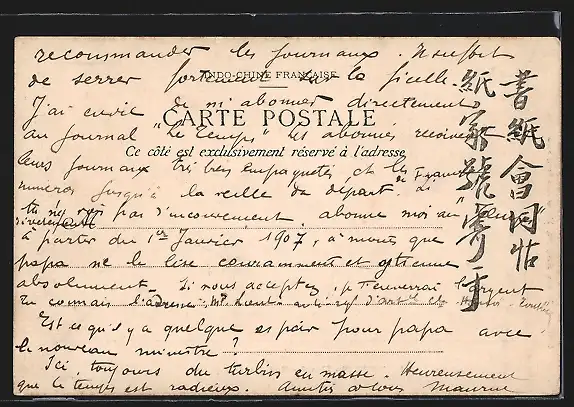 recommander les journaux. Il suffit
de serrer fortement la ficelle.
INDO-CHINE FRANÇAISE
J'ai envie de m'abonner directement
CARTE POSTALE
au journal "Le Temps" les abonnés reçoivent
Ce côté est exclusivement réservé à l'adresse
leurs journaux très bien empaquetés, et les
numéros jusqu'à la veille du départ. Si
de France
tu n'y vois pas d'inconvénient abonne moi au "Temps"
à partir du 1er Janvier 1907, à moins que
papa ne le lise couramment et y tienne
absolument. Si vous acceptez, je t'enverrai l'argent
Tu connais l'adresse: Mr Lieut.
Est ce qu'il y a quelque espoir pour papa avec
le nouveau ministre?
Ici, toujours du turbin en masse. Heureusement
que le temps est radieux. Amitiés à tous Maurice
書紙會同帖
紙
號
手